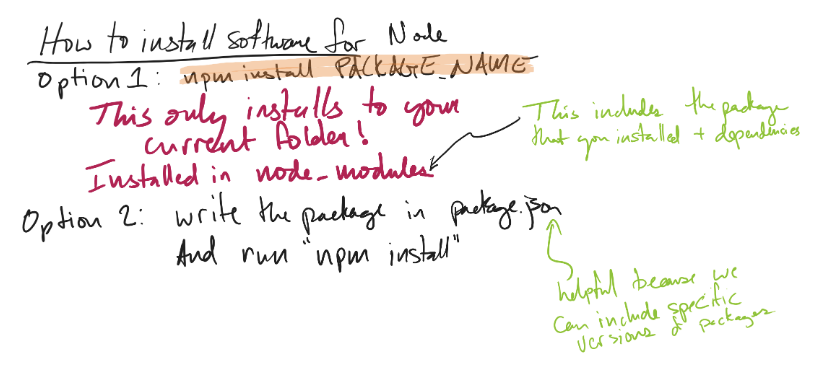 How to install software for Node
Option 1: npm install PACKAGE_NAME
This only installs to your
current folder!
Installed in node_modules
This includes the package
that you installed + dependencies
Option 2: write the package in package.json
And run "npm install"
helpful because we
can include specific
versions of packages